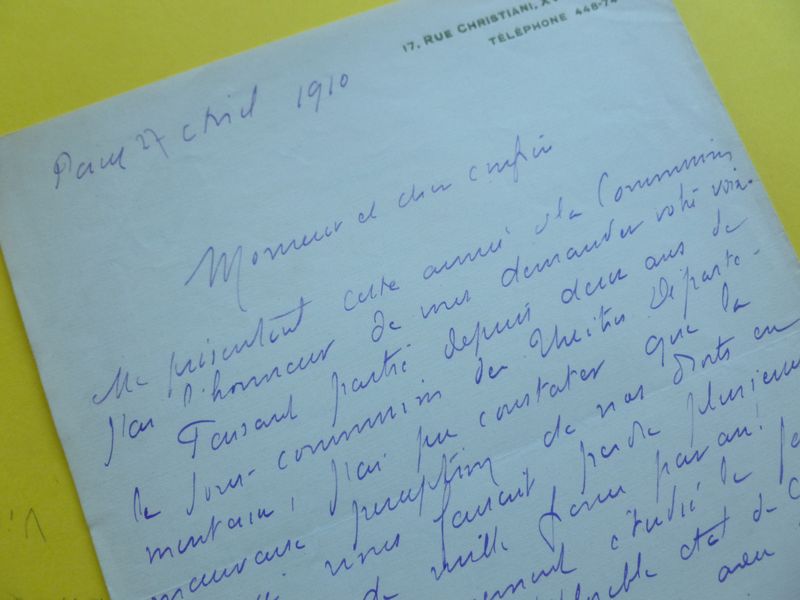 17, RUE CHRISTIANI, XV
TÉLÉPHONE 448-74
Paris 27 avril 1910
Monsieur et cher confrère
Me présentant cette année à la Commission
j'ai l'honneur de vous demander votre voix.
Faisant partie depuis deux ans de
la sous-commission des théâtres départe-
mentaux, j'ai pu constater que la
mauvaise perception de nos droits en
nous faisait perdre plusieurs
de mille francs par an!
étudié la
état de
avec